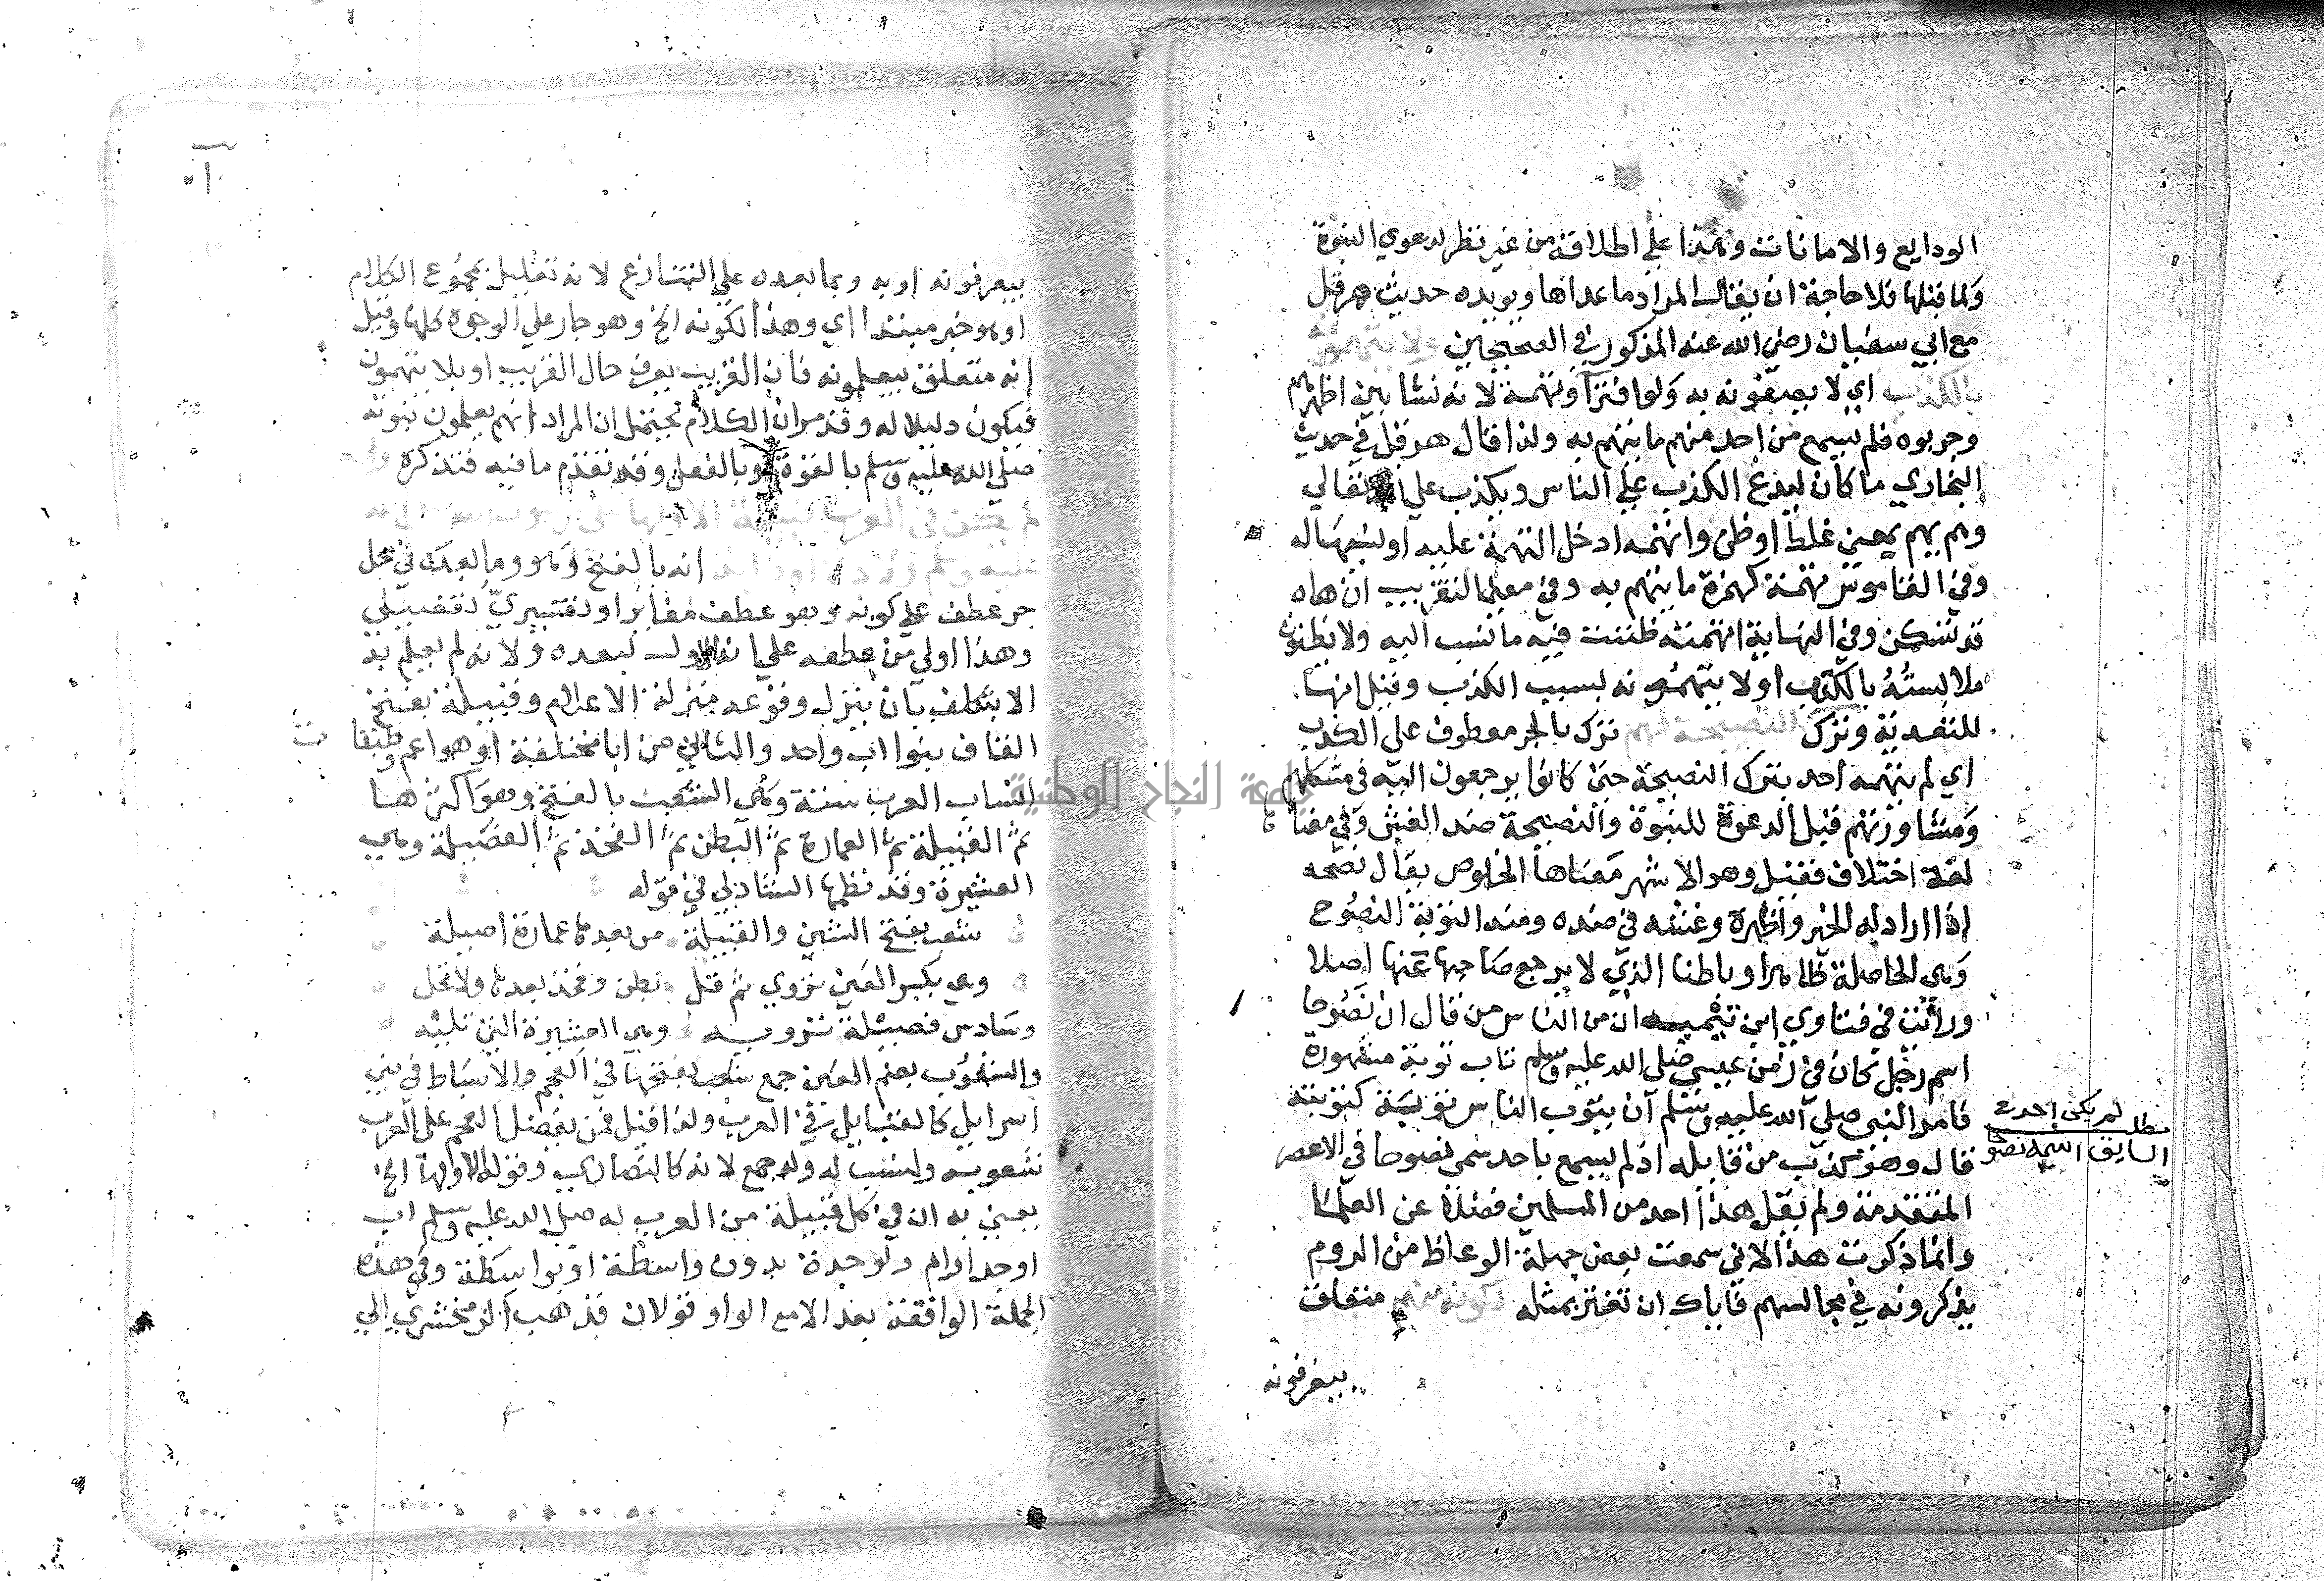 الودايع والامانات وهذا علي اطلاقه من غير نظر لدعوي النبوة
ولما قبلها فلا حاجة ان يقال المراد ما عداها ويويده حديث هرقل
مع ابي سفيان رضي الله عنه المذكور في الصحيحين ولا يتهمونه
بالكذب اي لا يصفونه به ولو افتراء وتهمة لانه نشا بين اظهرهم
وجربوه فلم يسمع من احد منهم ما يتهم به ولذا قال هرقل في حديث
البخاري ما كان ليدع الكذب علي الناس ويكذب علي الله تعالي
وهم يهم بمعني غلط او ظن واتهمه ادخل التهمة عليه او لنسبها له
وفي القاموس تهمة كهمزة ما يتهم به وفي معلم التقريب ان هاه
قد تسكن وفي النهاية اتهمته ظننت فيه ما نسب اليه ولا تظنون
ملابسته بالكذب او لا يتهمونه بسبب الكذب وقيل انها
للتعدية وترك النصيحة لهم ترك بالجر معطوف علي الكذب
اي لم يتهمه احد بترك النصيحة حتي كانوا يرجعون اليه في مشكلهم
ومشاورتهم قبل الدعوة للنبوة والنصيحة ضد الغش وفي معناها
لغة اختلاف فقيل وهو الاشهر معناها الخلوص يقال نصحه
اذا اراد له الخير واظهره وغشه في ضده ومنه التوبة النصوح
وهي الحاصلة ظاهرا وباطنا الذي لا يرجع صاحبها عنها اصلا
ورأيت في فتاوي ابن تيمية ان من الناس من قال ان نصوحا
اسم رجل كان في زمن عيسي صلي الله عليه وسلم تاب توبة مشهورة
فامر النبي صلي الله عليه وسلم ان يتوب الناس توبة كتوبته
قال وهو كذب من قايله اذ لم يسمع باحد سمي نصوحا في الاعصر
المتقدمة ولم يقل هذا احد من المسلمين فضلا عن العلما
وانما ذكرت هذا لاني سمعت بعض جهلة الوعاظ من الروم
يذكرونه في مجالسهم فاياك ان تغتر بمثله لكونه منهم متعلق
بيعرفونه
مطلب لم يكن احد في
السابق اسمه نصوحا
بيعرفونه او به وبما بعده علي التنازع لانه تعليل لمجموع الكلام
او هو خبر مبتدا اي وهذا لكونه الخ وهو جار علي الوجوه كلها وقيل
انه متعلق بيعلمونه فان القريب يعرف حال القريب او بلا يتهمون
فيكون دليلا له وقد مر ان الكلام يحتمل ان المراد انهم يعلمون نبوته
صلي الله عليه وسلم بالقوة او بالفعل وقد تقدم ما فيه فتذكره وانه
لم يكن في العرب قبيلة الا ولها علي رسول الله صلي الله
عليه وسلم ولادة او قرابة انه بالفتح وهو وما بعده في محل
جر عطف علي كونه وهو عطف مغاير او تفسيري تفصيلي
وهذا اولي من عطفه علي انه الاول لبعده ولانه لم يعلم به
الا بتكلف بان ينزل وقوعه منزلة الاعلام وقبيلة بفتح
القاف بنوا اب واحد والثاني من ابا مختلفة او هو اعم وطبقات
انساب العرب ستة وهي الشعب بالفتح وهو اكثرها
ثم القبيلة ثم العمارة ثم البطن ثم الفخذ ثم الفصيلة وهي
العشيرة وقد نظمها الشاذلي في قوله
شعب بفتح الشين والقبيلة من بعدها عمارة اصيلة
وهي بكسر العين تروي ثم قل بطن وفخذ بعدها ولا تحل
وسادس فصيلة ترويه وهي العشيرة التي تليه
والشعوب بضم العين جمع شعب بفتحها في العجم والاسباط في بني
اسرايل كالقبايل في العرب ولذا قيل لمن يفضل العجم علي العرب
شعوبي ولنسب له وله جمع لانه كانصاري وقوله الا ولها الخ
يعني به ان في كل قبيلة من العرب له صلي الله عليه وسلم اب
او جد او ام ولو جدة بدون واسطة او بواسطة وفي هذه
الجملة الواقعة بعد الا مع الواو قولان فذهب الزمخشري الي
جامعة النجاح الوطنية